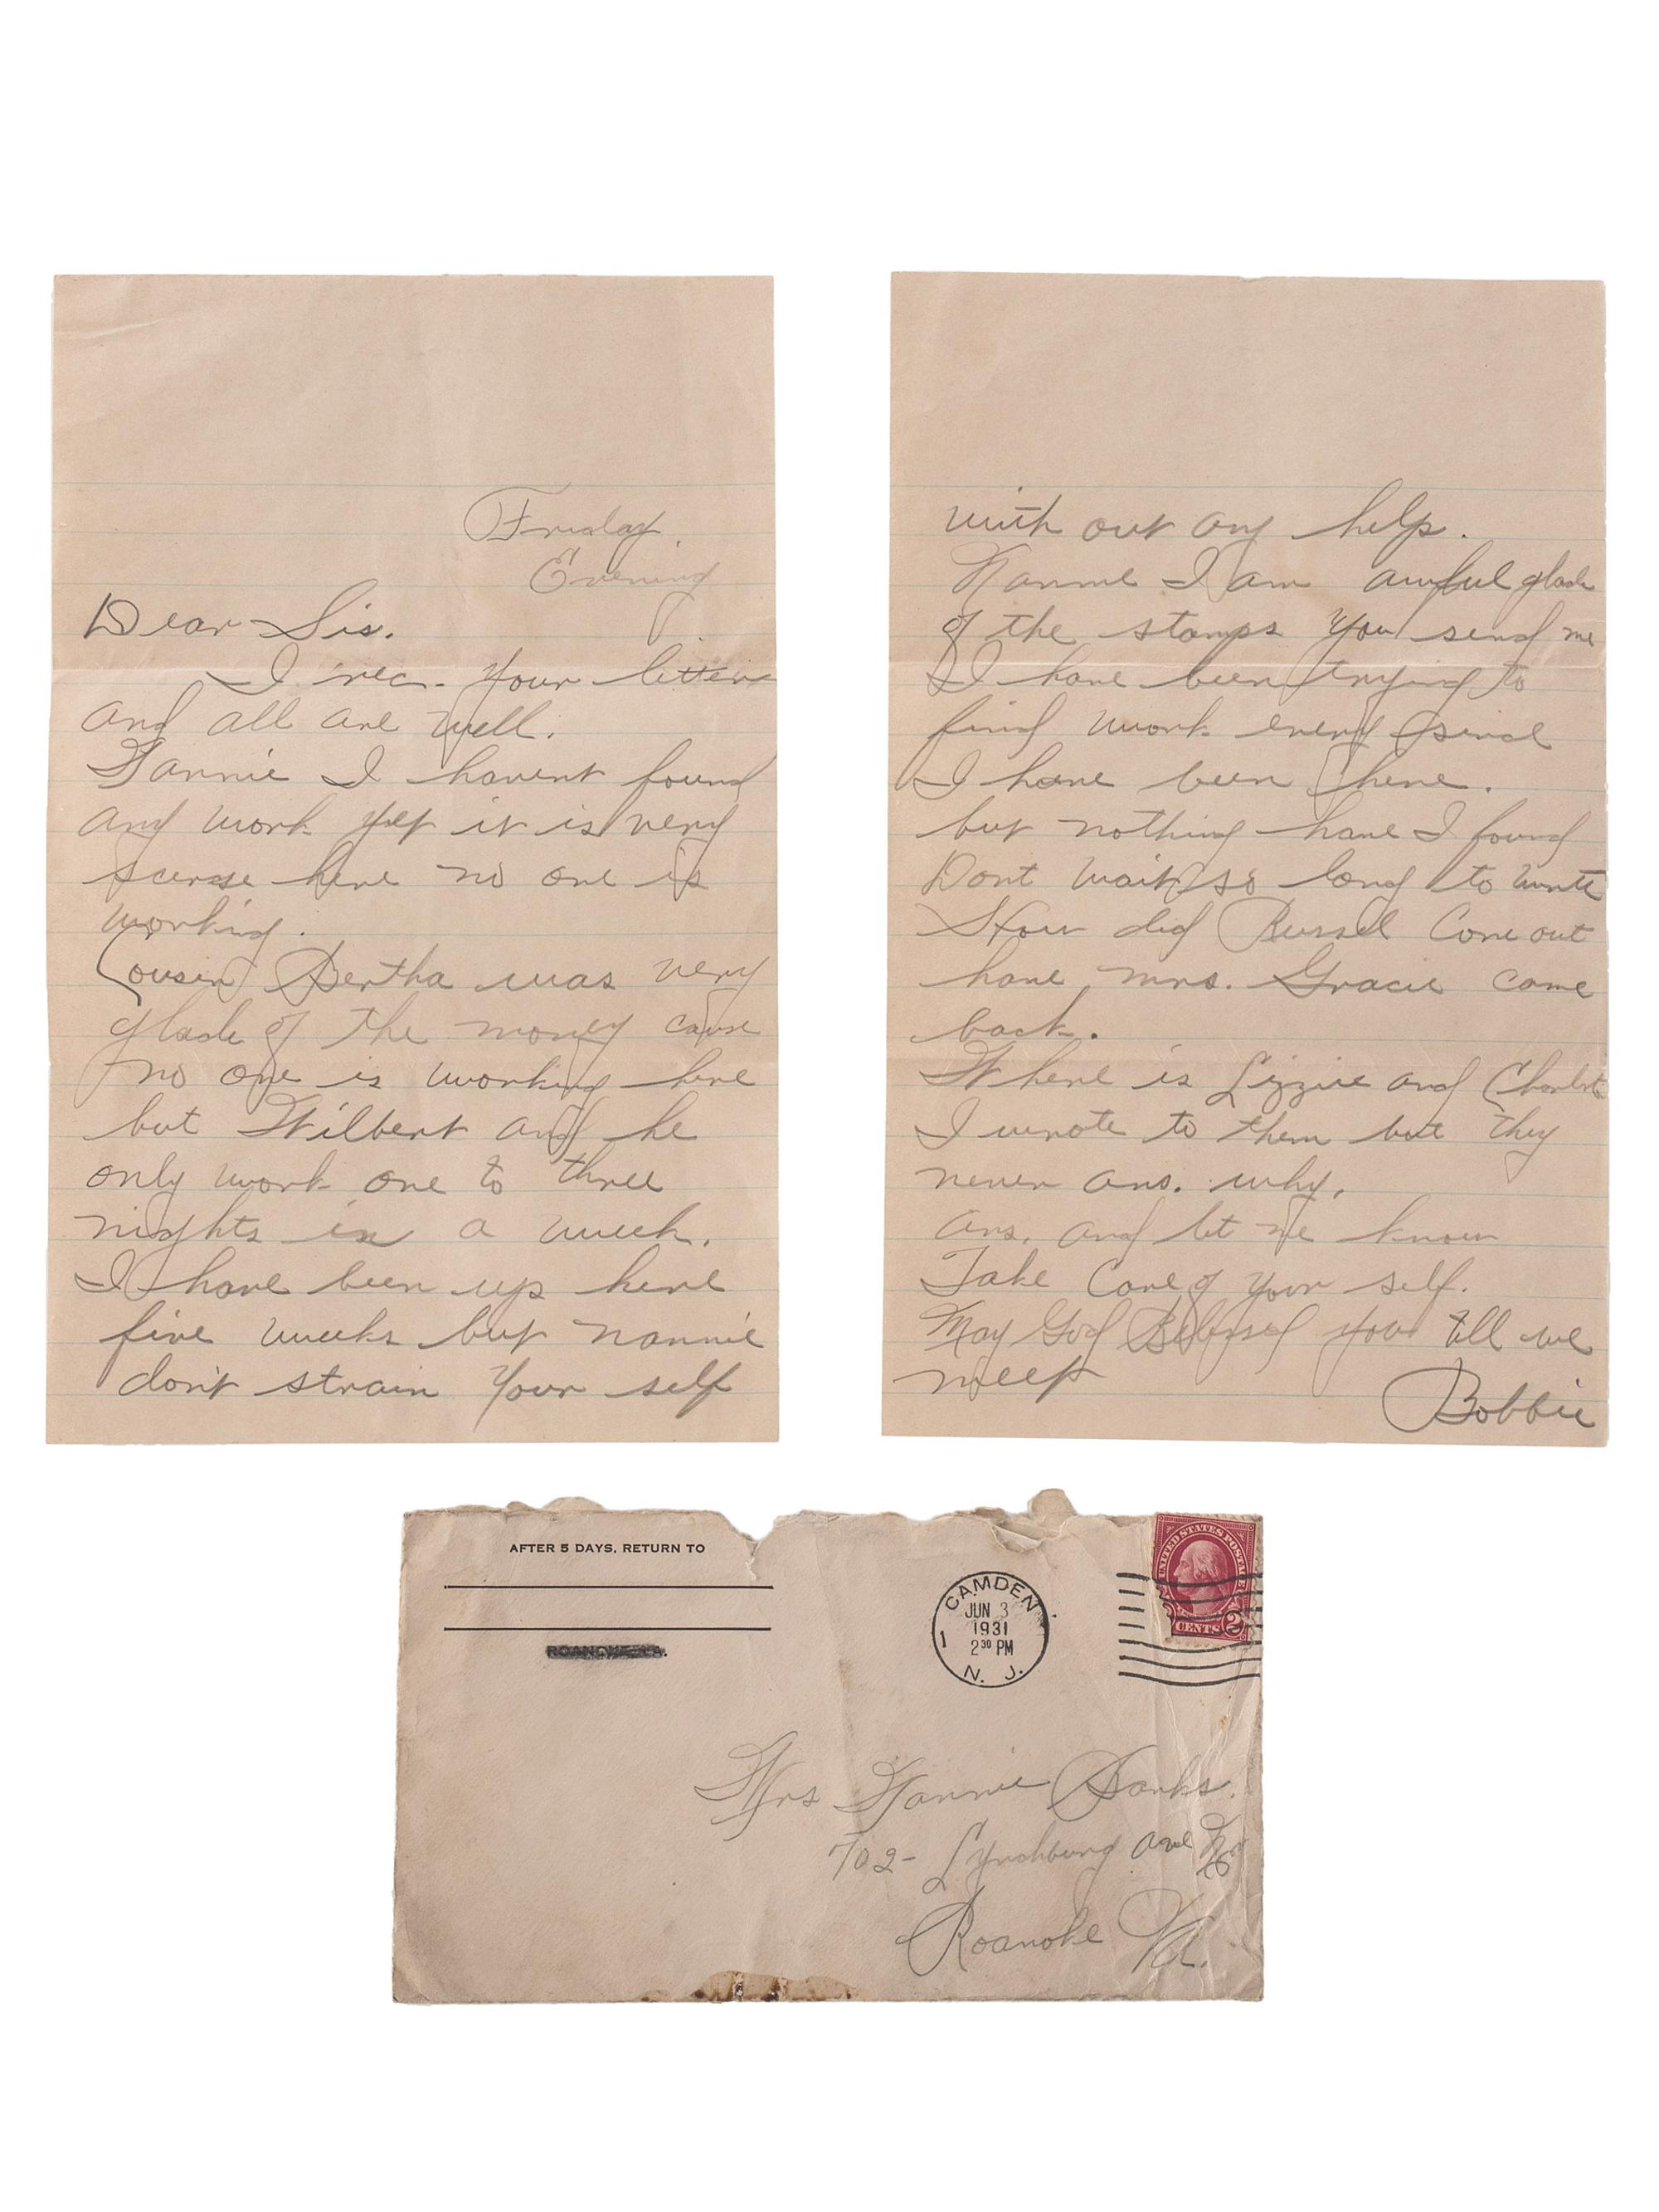 Friday
Evening
Dear Sis.
I rec. your letter
and all are well.
Fannie I havent found
any work yet it is very
scerse here no one is
working.
Cousin Bertha was very
glade of the money cause
no one is working here
but Wilbert and he
only work one to three
nights in a week.
I have been up here
five weeks but nannie
don't strain your self
with out any help.
Nannie I am awful glade
of the stamps you send me
I have been trying to
find work every since
I have been here.
but nothing have I found
Dont wait so long to write
How did Russel Come out
have mrs. Gracie came
back.
Where is Lizzie and
I wrote to them but they
never ans. why.
ans. and let me know
Take Care of your self.
May God you till we
meet
Bobbie
AFTER 5 DAYS, RETURN TO
CAMDEN
JUN 3
1931
2 30 PM
1
N. J.
UNITED STATES POSTAGE
2 CENTS 2
Mrs Fannie Banks.
702- Lynchburg ave
Roanoke Va.